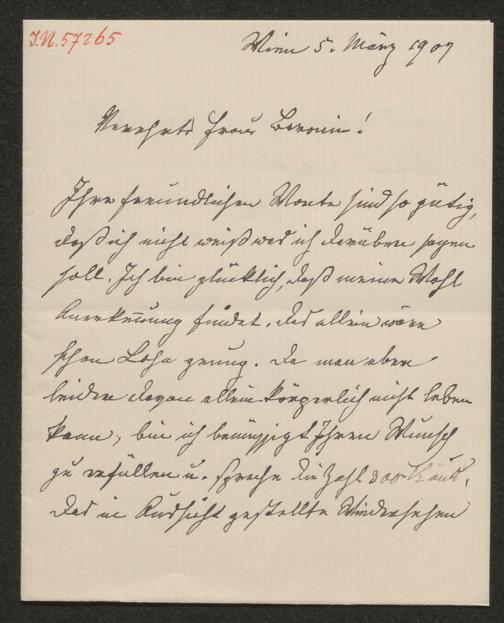 I.N. 57265
Wien 5. März 1907
Verehrte Frau Baronin!
Ihre freundlichen Worte sind so gütig,
daß ich nicht weiß was ich darüber sagen
soll. Ich bin glücklich, daß meine Wahl
Anerkennung findet. Das allein wäre
schon Lohn genug. Da man aber
leider davon allein körperlich nicht leben
kann, bin ich bemüssigt Ihren Wunsch
zu erfüllen u. spreche die Zahl 300 K aus.
Das in Aussicht gestellte Wiedersehen